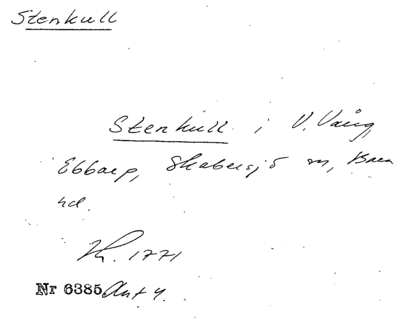 Stenkull
Stenkull i V. Vång,
Ebbarp, Skabersjö sn, Bara
hd.
Kh. 1771
Nr 6385 Akt 4.